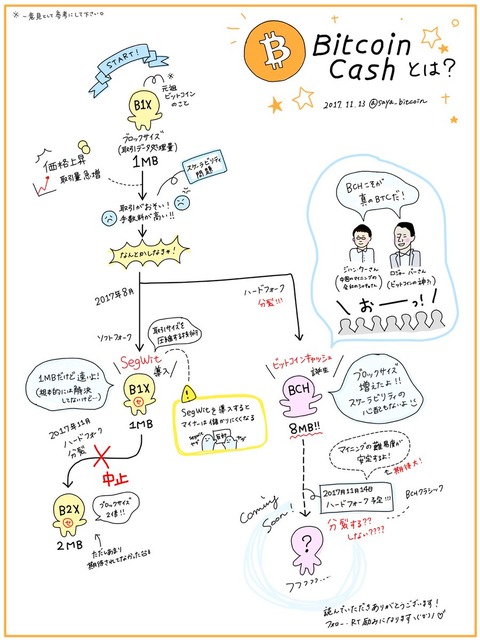 ※一意見として参考にして下さい。
Bitcoin
Cash とは?
2017.11.13 @saya_bitcoin
START!
B1X
※
元祖
ビットコイン
のこと
ブロックサイズ
(取引データ処理量)
1MB
価格上昇
取引量急増
スケーラビリティ
問題
取引がおそい!
手数料が高い!!
なんとかしなきゃ!
2017年8月
ハードフォーク
分裂!!!
ソフトフォーク
SegWit
導入
取引サイズを
圧縮する技術
1MBだけど速いよ!
(根本的には解決
してないけど…)
B1X
1MB
SegWitを導入すると
マイナーは儲かりにくくなる
反対
2017年11月
ハードフォーク
分裂
中止
B2X
2MB
ブロックサイズ
2倍!!
ただしあまり
期待されてなかった
BCHこそが
真のBTCだ!
ジハン・ウーさん
ロジャー・バーさん
(ビットコインの神?)
おーっ!
ビットコインキャッシュ
誕生
BCH
8MB!!
ブロックサイズ
増えたよ!!
スケーラビリティの
心配もないよ
マイニングの難易度が
安定するよ!
期待大!
2017年11月14日
ハードフォーク予定!!!
BCHクラシック
分裂する??
しない????
Coming
Soon!
?
フフフフフ…
読んでいただきありがとうございます!
フォロー、RT励みになります